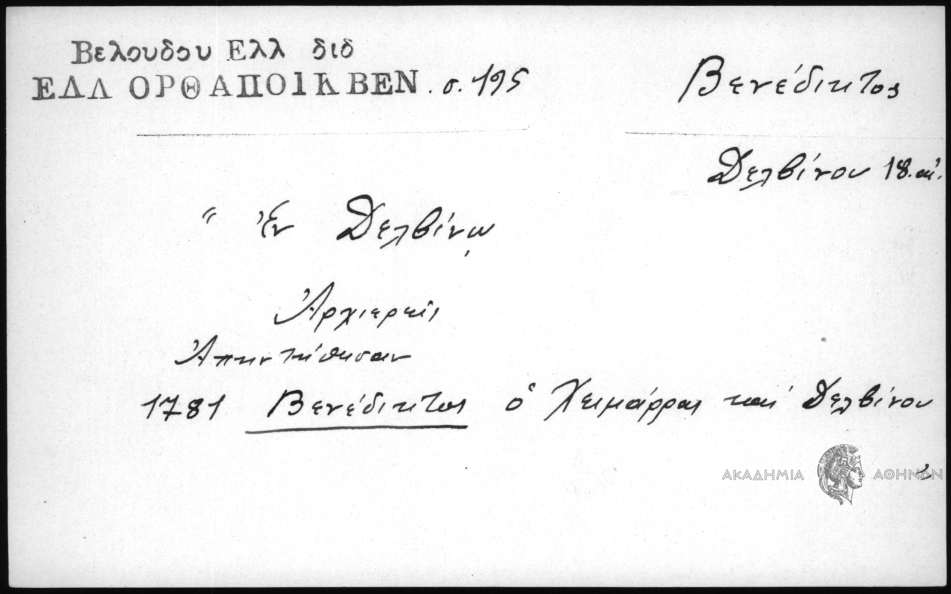 Βελουδου Ελλ διδ
ΕΛΛ ΟΡΘ ΑΠΟΙΚ ΒΕΝ . σ. 195
Βενέδικτος
Δελβίνου 18. αἰ.
" Ἐν Δελβίνῳ
Ἀρχιερεῖς
1781 Βενέδικτος ὁ Χειμάρρας καί Δελβίνου
ΑΚΑΔΗΜΙΑ ΑΘΗΝΩΝ